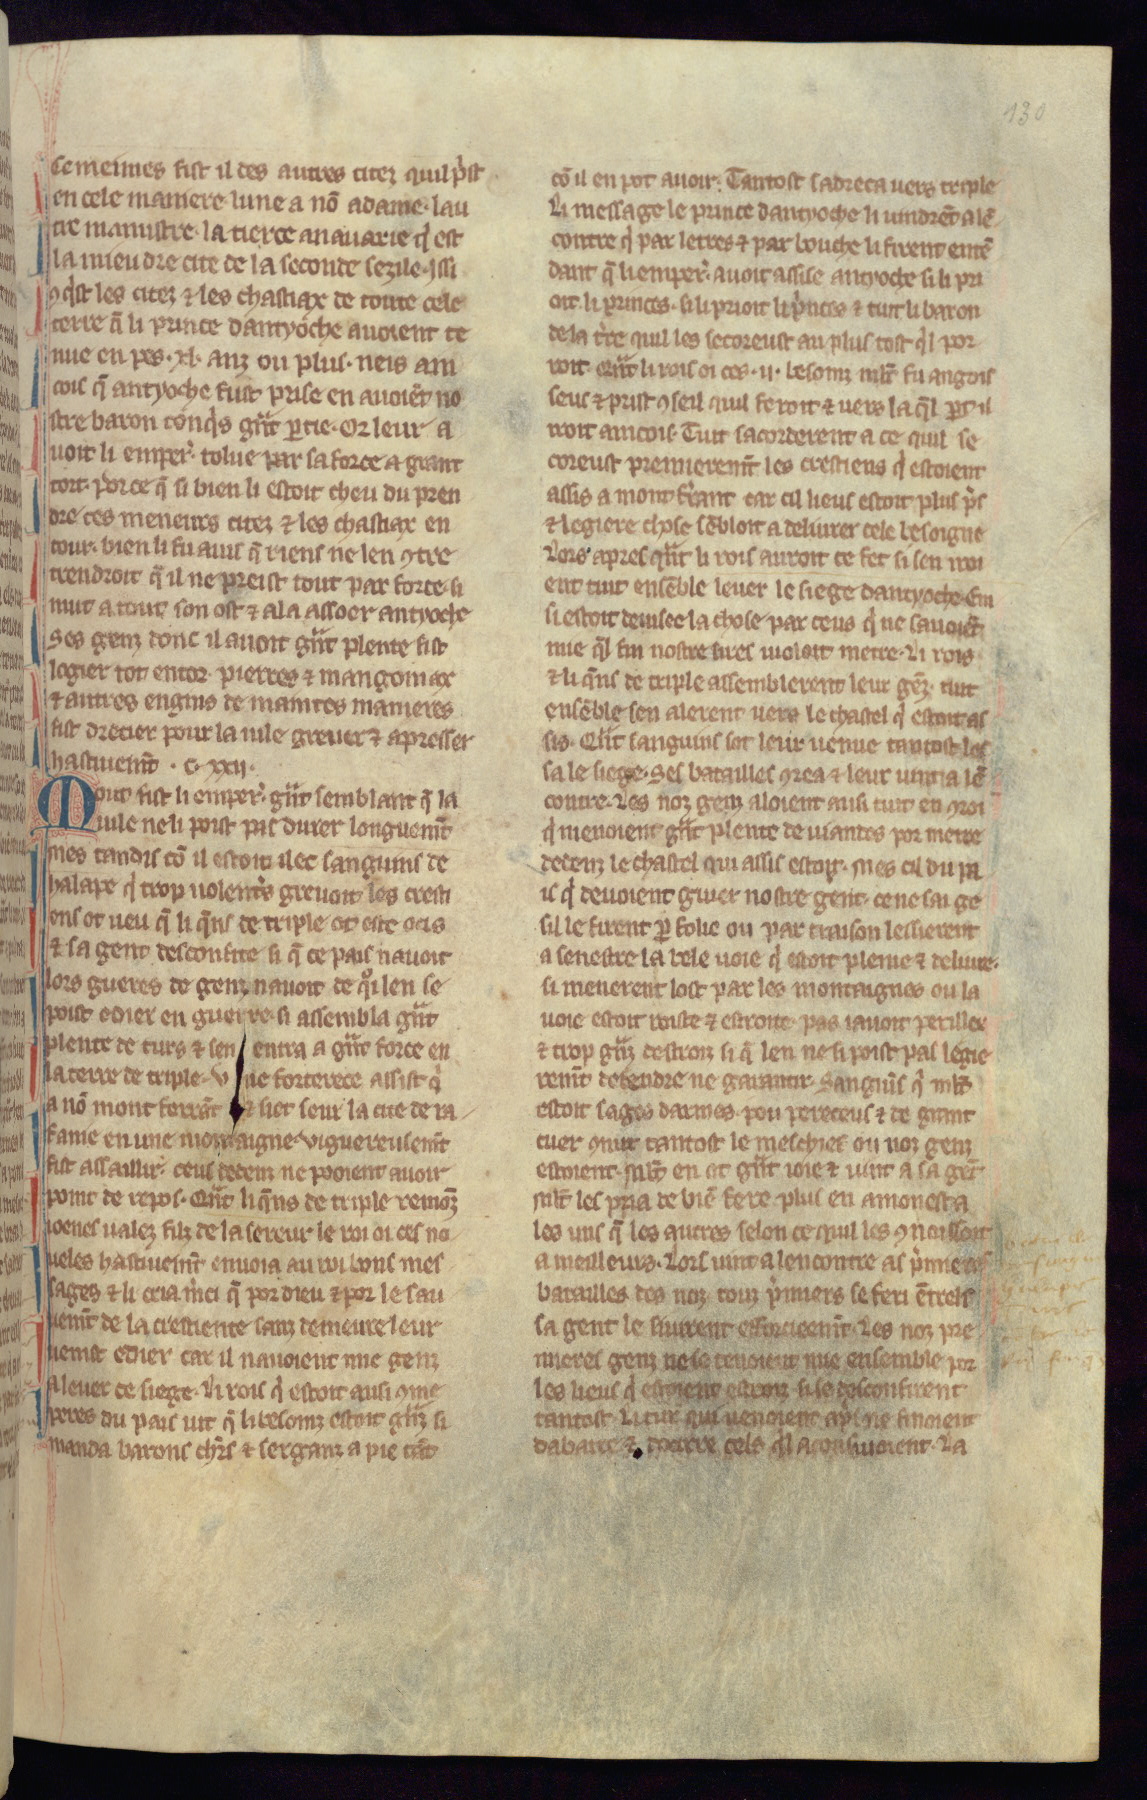 130
Ce meimes fist il des autres citez quil p̾st
en cele maniere lune a nō adame · lau
tre mamistre · la tierce anauarie q̾ est
la mieudre cite de la seconde sezile · Issi
ꝯq̾st les citez ⁊ les chastiax de toute cele
terre q̄ li prince dantyoche auoient te
nue en pes · xl · anz ou plus · neis ain
cois q̄ antyoche fust prise en auoiēt no
stre baron conq̾s g̾nt ꝑtie · Or leur a
uoit li emper̾ · tolue par sa force a grant
tort · porce q̄ si bien li estoit cheu du pren
dre ces meneurs citez ⁊ les chastiax en
tour · bien li fu auis q̄ riens ne len ꝯtre
tendroit q̄ il ne preist tout par force · si
mut a tout son ost ⁊ ala assoer antyoche
Ses genz donc il auoit g̾nt plente fist
logier tot entor · pierres ⁊ mangoniax
⁊ autres engins de maintes manieres
fist drecier pour la uile greuer ⁊ apresser
hastiuemēt · c · xxij ·
Mout fist li emper̾ · g̾nt semblant q̄ la
uile ne li poist pas durer longuemēt
mes tandis cō il estoit ilec sanguins de
halape q̾ trop uolent̾s greuoit les cresti
ens ot ueu q̄ li q̄ns de triple ot este ocis
⁊ sa gent desconfite si q̄ ce pais nauoit
lors gueres de genz nauoit de q̾i len se
poist edier en guerre · si assembla g̾nt
plente de turs ⁊ sen entra a g̾nt force en
la terre de triple · Une forterece assist q̾
a nō mont ferrāt ⁊ siet seur la cite de ra
fanie en une montaigne · Viguereusemēt
fist assaillir · ceus dedenz ne pooient auoir
point de repos · Q̾nt li q̄ns de triple remōz
ioenes ualez filz de la sereur le roi oi ces no
ueles hastiuemēt enuoia au roi bons mes
sages ⁊ li cria m̾ci q̄ por dieu ⁊ por le sau
uemēt de la crestiente sanz demeure leur
uenist edier car il nauoient mie genz
a leuer ce siege · Li rois q̾ estoit ausi ꝯme
peres du pais uit q̄ li besoinz estoit g̾nz si
manda barons ch̾rs ⁊ serganz a pie tāt
cō il en pot auoir · Tantost sadreca uers triple
Li message le prince dantyoche li uindrēt a lē
contre q̾ par letres ⁊ par bouche li firent entē
dant q̄ li emper̾ · auoit assise antyoche si li pri
oit li princes · si li prioit li p̾nces ⁊ tuit li baron
de la t̾re quil les secoreust au plus tost q̾l por
roit · Q̾nt li rois oi ces · ii · besoinz m̾lt fu angois
seus ⁊ prist ꝯseil quil feroit ⁊ uers la q̾l ꝑt il
iroit aincois · Tuit sacorderent a ce quil se
coreust premieremēt les crestiens q̾ estoient
assis a mont f̾rant car cil lieus estoit plus p̾s
⁊ legiere chose sēbloit a deliurer cele besoigne
Lors apres q̾nt li rois auroit ce fet si sen iroi
ent tuit ensēble leuer le siege dantyoche · Ein
si estoit deuisee la chose par ceus q̾ ne sauoiēt
mie q̾l fin nostre sires uoloit metre · Li rois
⁊ li q̄ns de triple assemblerent leur gēz · tuit
ensēble sen alerent uers le chastel q̾ estoit as
sis · Q̾nt sanguins sot leur uenue tantost les
sa le siege · Ses batailles ꝯrea ⁊ leur uint a lē
contre · Les noz genz aloient ausi tuit en ꝯroi
q̾ menoient g̾nt plente de uiandes por metre
dedenz le chastel qui assis estoit · Mes cil du pa
is q̾ deuoient guier nostre gent · ce ne sai ge
sil le firent ꝑ folie ou par traison lessierent
a senestre la bele uoie q̾ estoit pleine ⁊ deliure ·
si menerent lost par les montaignes ou la
uoie estoit roiste ⁊ estroite · pas iauoit perillex
⁊ trop g̾nz destroiz si q̄ len ne si poist pas legie
remēt defendre ne garantir · Sanguīs q̾ m̾lt
estoit sages darmes · pou pereceus ⁊ de grant
cuer ꝯnut tantost le meschief ou noz genz
estoient · M̾lt en ot g̾nt ioie ⁊ uint a sa gēt
M̾lt les pria de biē fere · plus en amonesta
les uns q̄ les autres selon ce quil les ꝯnoissoit
a meilleurs · Lors uint a lencontre as p̾miers
batailles des noz touz p̾miers se feri ētrels
sa gent le siuirent efforcieemēt · Les noz pre
mieres genz ne se tenoient mie ensemble por
les lieus q̾ estoient estroiz si se desconfirent
tantost · Li tur qui uenoient ap̾s ne finoient
dabatre ⁊ docirre cels q̾l aconsiuoient · La